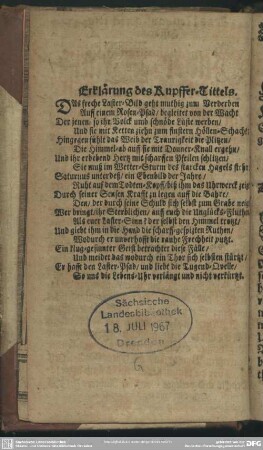 Erklärung des Kupffer-Tittels.
DAs freche Laster-Bild geht muthig zum Verderben
Auf einem Rosen-Pfad/ begleitet von der Wacht
Der jenen/ so ihr Volck umb schnöde Lüste werben/
Und sie mit Ketten ziehn zum finstern Höllen-Schacht:
Hingegen fühlt das Weib der Traurigkeit die Plitzen/
Die Himmel-ab auff sie mit Donner-Knall ergehn/
Und ihr erbebend Hertz mit scharffen Pfeilen schlitzen/
Sie muß im Wetter-Sturm des starcken Hagels stehn
Saturnus unterdeß/ ein Ebenbild der Jahre/
Ruht auf dem Todten-Kopf/ biß ihm das Uhrwerck zeigt
Durch seiner Sensen Krafft zu legen auff die Bahre/
Den/ der durch seine Schuld sich selbst zum Grabe neigt
Wer bringt/ ihr Sterblichen/ auff euch die Unglücks-Fluthen
Als euer Laster-Sinn/ der selbst den Himmel trutzt/
Und giebt ihm in die Hand die scharff-gespitzten Ruthen/
Wodurch er unverhofft die rauhe Frechheit putzt.
Ein klug-gesinnter Geist betrachtet diese Fälle/
Und meidet das wodurch ein Thor sich selbsten stürtzt/
Er hasst den Laster-Pfad/ und liebt die Tugend-Quelle/
So uns die Lebens-Uhr verlängt und nicht verkürtzt.
Sächsische
Landesbibliothek
18. JULI 1967
Dresden
G